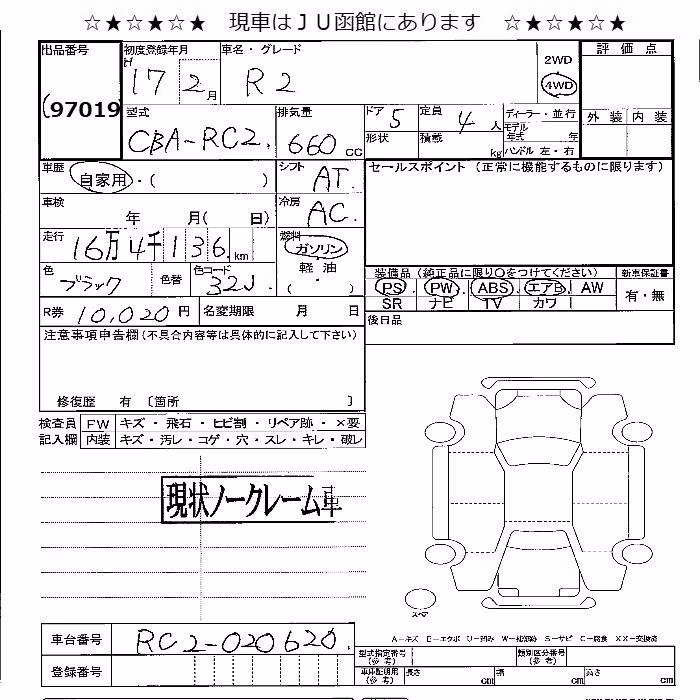 ☆★☆★☆★ 現車はJU函館にあります ☆★☆★☆★
出品番号 初度登録年月 車名・グレード 評価点
H 17 2月 R2 2WD 4WD
(97019 外装 内装
型式 排気量 ドア 5 定員 4人 ディーラー・並行
CBA-RC2. 660cc 形状 積載 kg モデル年式 年
ハンドル 左・右
車歴 自家用・( ) シフト AT. セールスポイント(正常に機能するものに限ります)
車検 年 月( 日) 冷房 AC.
走行 16万4千136.km 燃料 ガソリン・軽油
( ・ )
色 ブラック 色替 色コード 32J. 装備品(純正品に限り○をつけてください) 新車保証書
PS. PW. ABS. エアB. AW 有・無
SR ナビ TV カワ
R券 10,020円 名変期限 月 日 後日品
注意事項申告欄(不具合内容等は具体的に記入して下さい)
修復歴 有 〔箇所 〕
検査員 FW キズ・飛石・ヒビ割・リペア跡・×要
記入欄 内装 キズ・汚レ・コゲ・穴・スレ・キレ・破レ
現状ノークレーム車
スペア
A-キズ E-エクボ U-凹み W-補修跡 S-サビ C-腐食 XX-交換済
車台番号 RC2-020620.
型式指定番号(参考) 類別区分番号(参考)
登録番号 車庫証明用(参考) 長さ cm 幅 cm 高さ cm